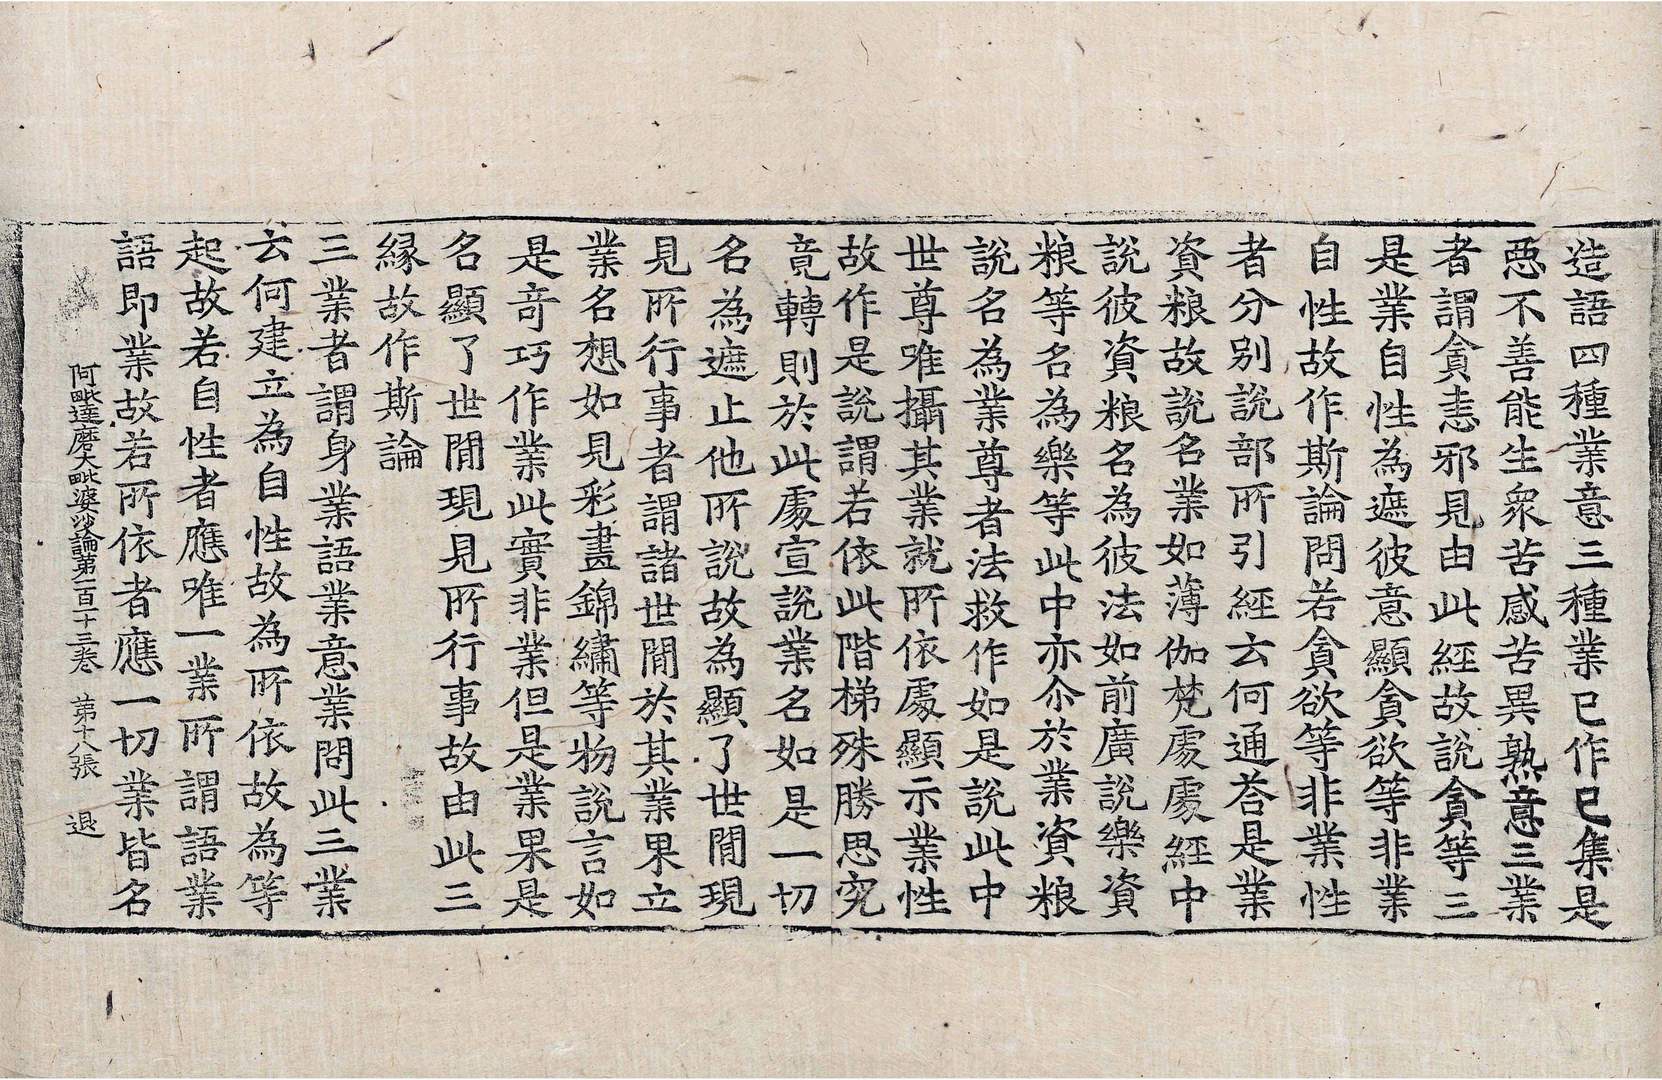 造語四種業意三種業已作已集是
惡不善能生衆苦感苦異熟意三業
者謂貪恚邪見由此經故說貪等三
是業自性為遮彼意顯貪欲等非業
自性故作斯論問若貪欲等非業性
者分別說部所引經云何通荅是業
資粮故說名業如薄伽梵處處經中
說彼資粮名為彼法如前廣說樂資
粮等名為樂等此中亦尒於業資粮
說名為業尊者法救作如是說此中
世尊唯攝其業就所依處顯示業性
故作是說謂若依此階梯殊勝思究
竟轉則於此處宣說業名如是一切
名為遮止他所說故為顯了世閒現
見所行事者謂諸世閒於其業果立
業名想如見彩畫錦繡等物說言如
是奇巧作業此實非業但是業果是
名顯了世閒現見所行事故由此三
緣故作斯論
三業者謂身業語業意業問此三業
云何建立為自性故為所依故為等
起故若自性者應唯一業所謂語業
語即業故若所依者應一切業皆名
阿毗達磨大毗婆沙論第一百十三卷 第十八張 退